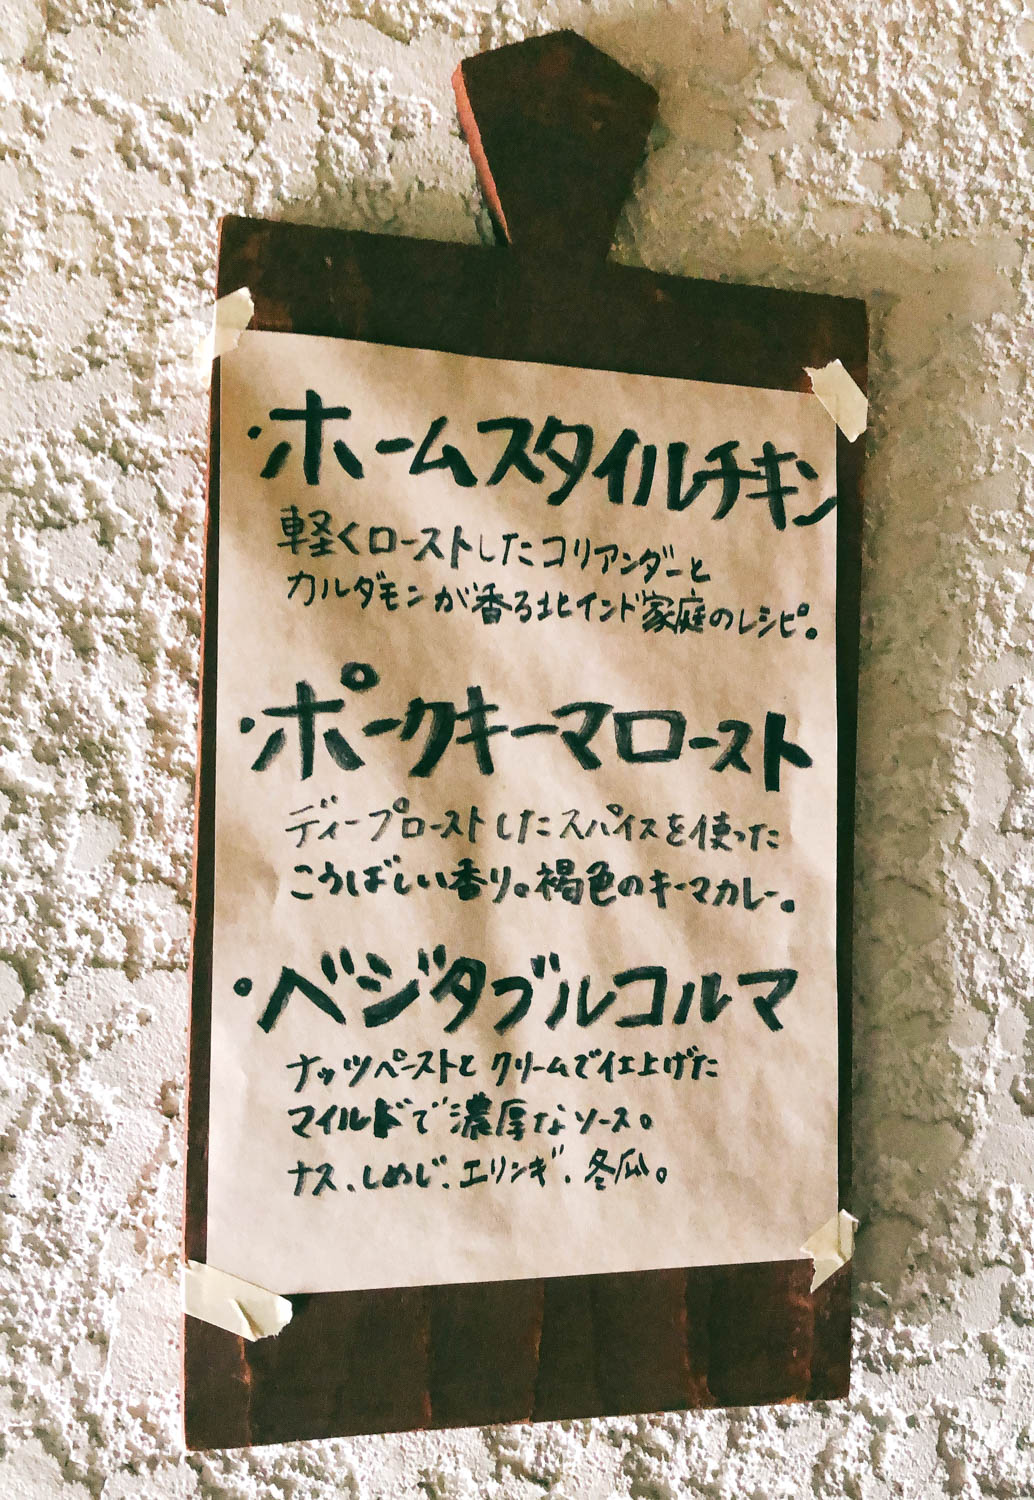 ・ホームスタイルチキン
軽くローストしたコリアンダーと
カルダモンが香る北インド家庭のレシピ。
・ポークキーマロースト
ディープローストしたスパイスを使った
こうばしい香り。褐色のキーマカレー。
・ベジタブルコルマ
ナッツペーストとクリームで仕上げた
マイルドで濃厚なソース。
ナス、しめじ、エリンギ、冬瓜。